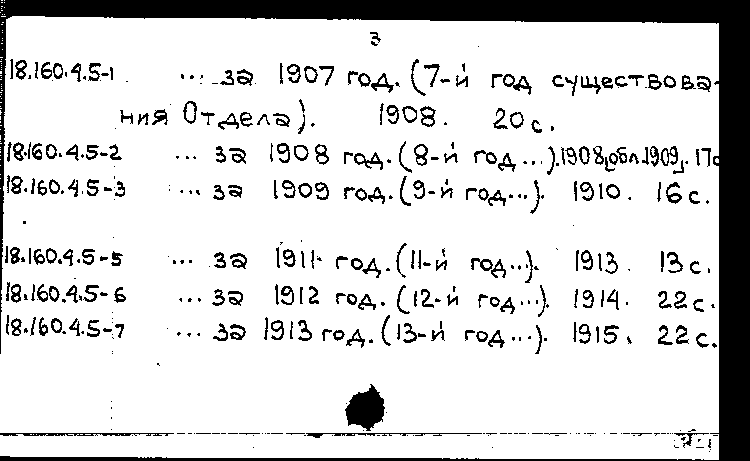 3
18.160.4.5-1 ... за 1907 год. (7-й год существова-
ния Отдела). 1908. 20 с.
18.160.4.5-2 ... за 1908 год. (8-й год...). 1908, [обл. 1909]. 17 с
18.160.4.5-3 ... за 1909 год. (9-й год...). 1910. 16 с.
18.160.4.5-5 ... за 1911 год. (11-й год...). 1913. 13 с.
18.160.4.5-6 ... за 1912 год. (12-й год...). 1914. 22 с.
18.160.4.5-7 ... за 1913 год. (13-й год...). 1915. 22 с.